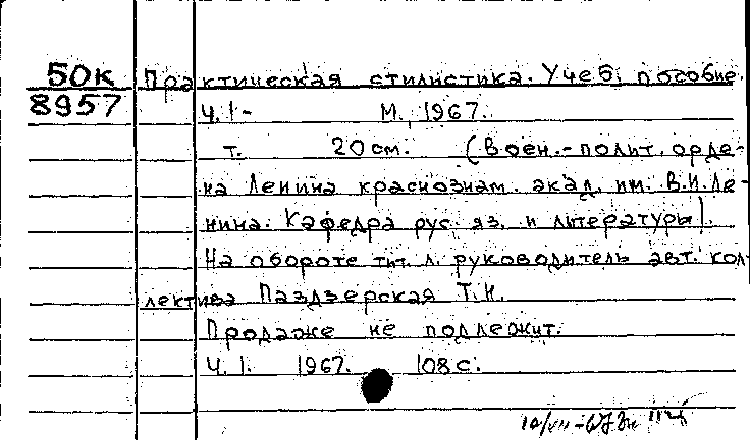 50к Практическая стилистика. Учеб. пособие.
8957 Ч. 1- М., 1967.
т. 20 см. (Воен.-полит. орде-
на Ленина краснознам. акад. им. В.И. Ле-
нина. Кафедра рус. яз. и литературы).
На обороте тит. л. руководитель авт. кол-
лектива Паздзерская Т.И.
Продаже не подлежит.
Ч. 1. 1967. 108 с.